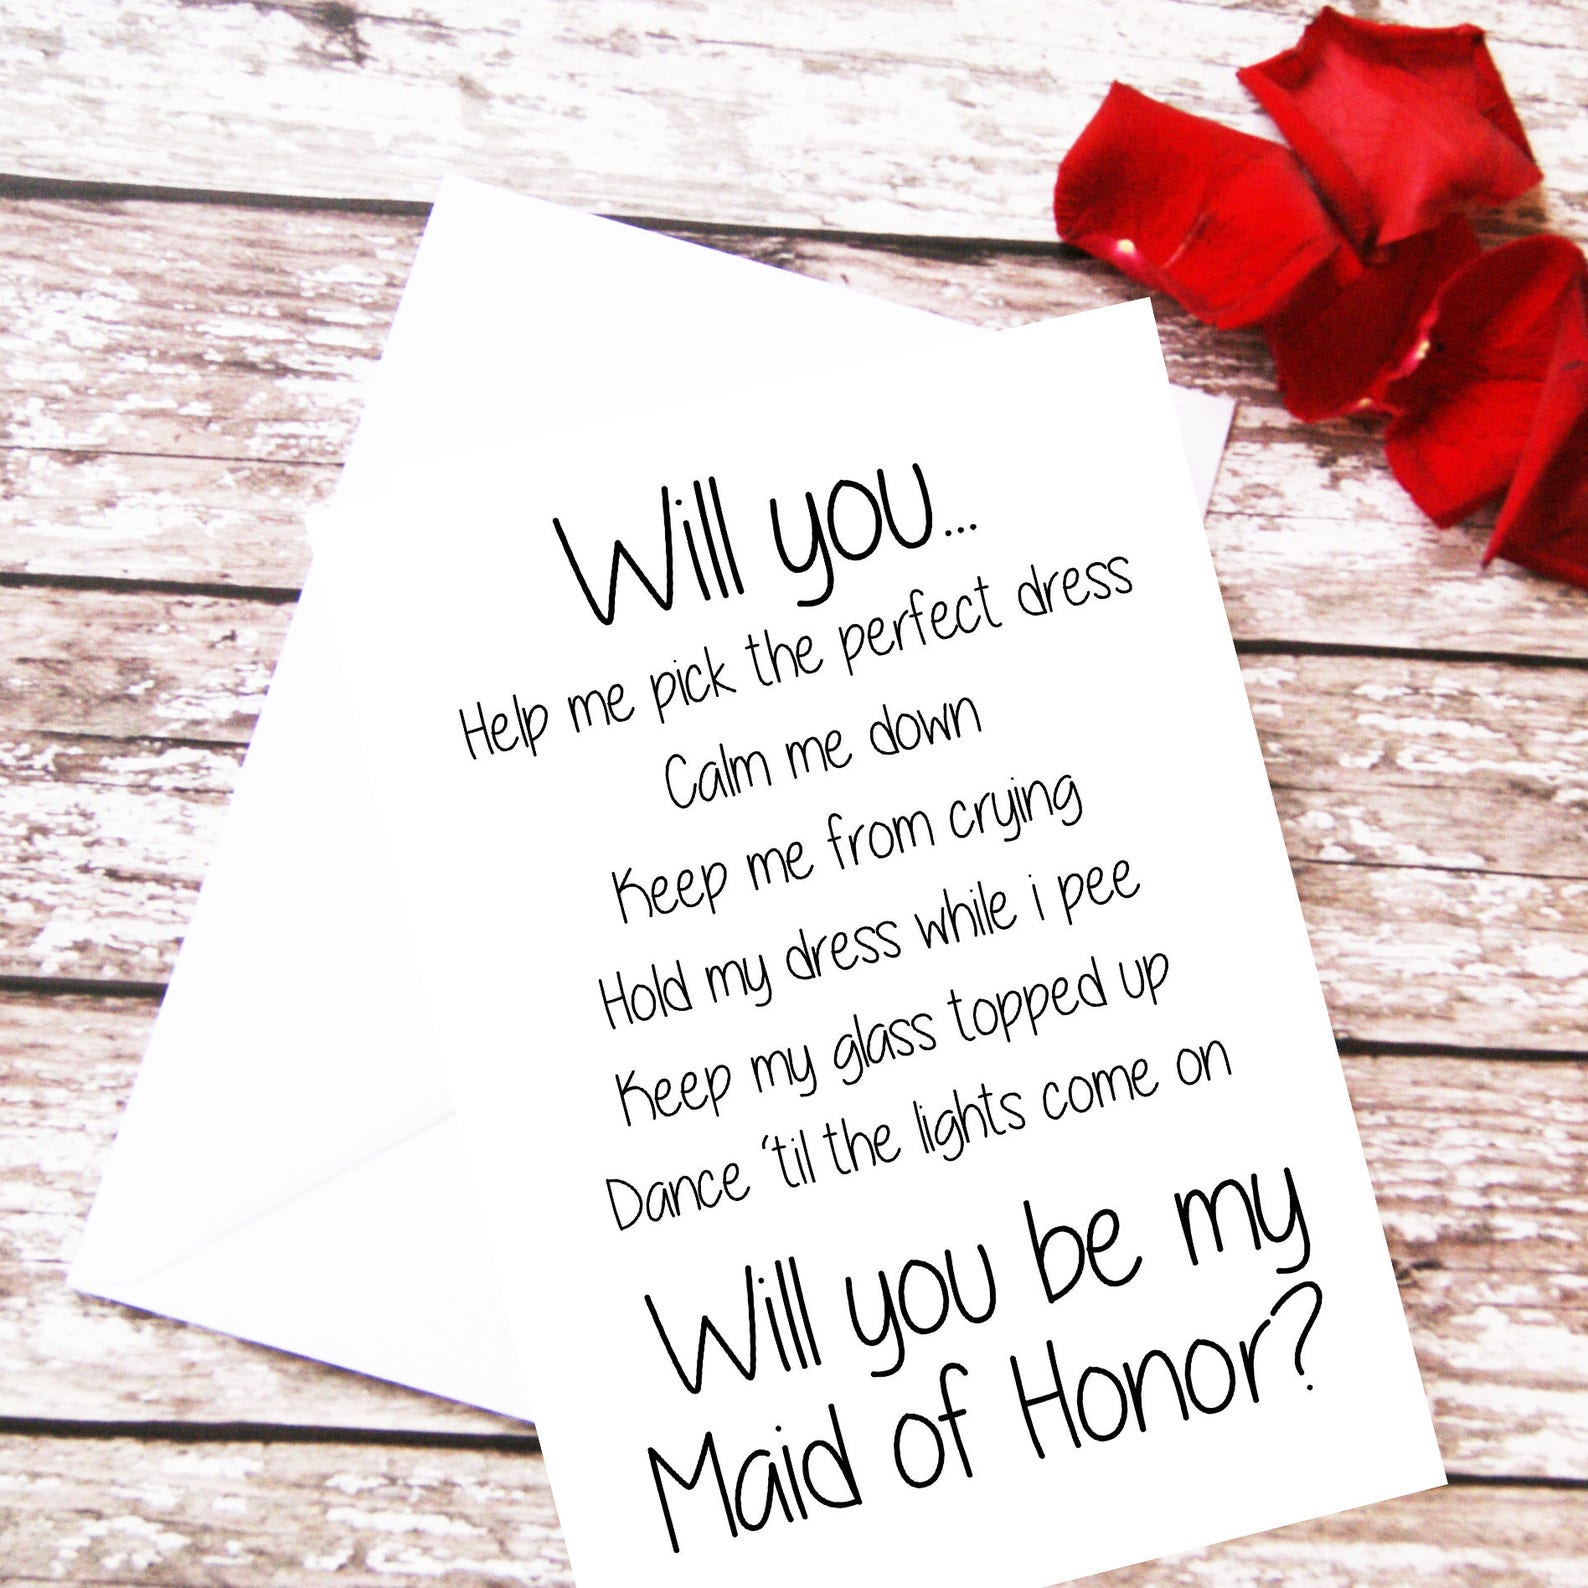 Will you...
Help me pick the perfect dress
Calm me down
Keep me from crying
Hold my dress while i pee
Keep my glass topped up
Dance 'til the lights come on
Will you be my
Maid of Honor?